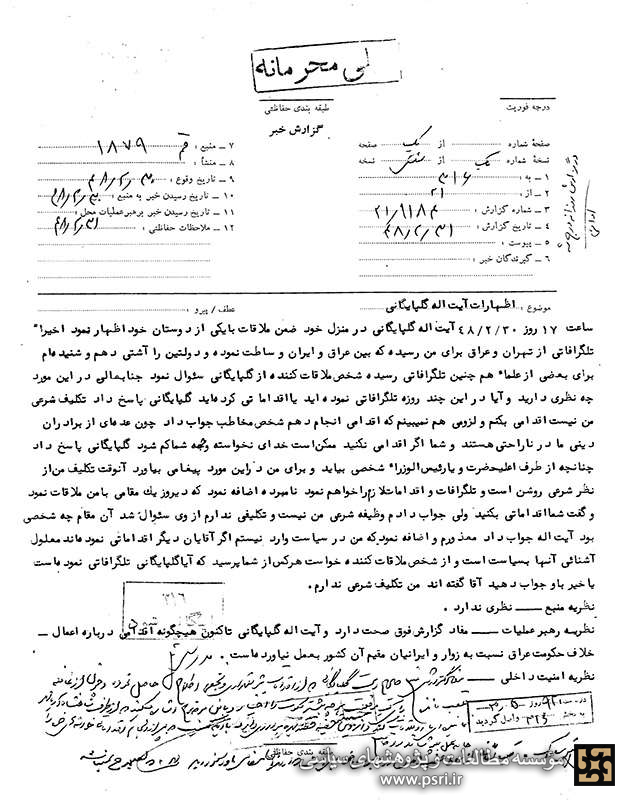 خیلی محرمانه
درجه فوریت
طبقه بندی حفاظتی
گزارش خبر
صفحهٔ شماره یک از یک صفحه
نسخهٔ شماره یک از نسخه
۱ ـ به : ۳۱۶
۲ ـ از : ۲۱
۳ ـ شماره گزارش :
۴ ـ تاریخ گزارش : ۴۸/۲/۳۱
۵ ـ پیوست :
۶ ـ گیرندگان خبر :
۷ ـ منبع : ۱۸۷۹ قم
۸ ـ منشأ :
۹ ـ تاریخ وقوع : ۴۸/۲/۳۰
۱۰ ـ تاریخ رسیدن خبر به منبع : ۴۸/۲/۳۰
۱۱ ـ تاریخ رسیدن خبر برهبرعملیات محل : ۴۸/۲/۳۱
۱۲ ـ ملاحظات حفاظتی :
موضوع : اظهارات آیت اله گلپایگانی
عطف / پیرو :
ساعت ۱۷ روز ۴۸/۲/۳۰ آیت اله گلپایگانی در منزل خود ضمن ملاقات بایکی از دوستان خود اظهار نمود اخیرا"
تلگرافاتی از تهران و عراق برای من رسیده که بین عراق و ایران و ساطت نموده و دولتین را آشتی دهم و شنیده‌ام
برای بعضی از علماء هم چنین تلگرافاتی رسیده شخص ملاقات کننده از گلپایگانی سئوال نمود جنابعالی در این مورد
چه نظری دارید و آیا در این چند روزه تلگرافاتی نموده اید یا اقداماتی کرده‌اید گلپایگانی پاسخ داد تکلیف شرعی
من نیست اقدامی بکنم و لزومی هم نمیبینم که اقدامی انجام دهم شخص مخاطب جواب داد چون عده‌ای از برادران
دینی ما در ناراحتی هستند و شما اگر اقدامی نکنید ممکن است خدای نخواسته وجهه شما کم شود گلپایگانی پاسخ داد
چنانچه از طرف اعلیحضرت و یا رئیس‌الوزراء شخصی بیاید و برای من در این مورد پیغامی بیاورد آنوقت تکلیف من از
نظر شرعی روشن است و تلگرافات و اقدامات لازم را خواهم نمود نامبرده اضافه نمود که دیروز یک مقامی با من ملاقات نمود
و گفت شما اقداماتی بکنید ولی جواب دادم وظیفه شرعی من نیست و تکلیفی ندارم از وی سئوال شد آن مقام چه شخصی
بود آیت اله جواب داد معذورم و اضافه نمود که من در سیاست وارد نیستم اگر آقایان دیگر اقداماتی نموده‌اند معلول
آشنائی آنها بسیاست است و از شخص ملاقات کننده خواست هرکس از شما پرسید که آیا گلپایگانی تلگرافاتی نموده است
یا خیر باو جواب دهید آقا گفته اند من تکلیف شرعی ندارم .
نظریه منبع ــ نظری ندارد .
نظریه رهبر عملیات ــ مفاد گزارش فوق صحت دارد و آیت اله گلپایگانی تاکنون هیچگونه اقدامی درباره اعمال ــ
خلاف حکومت عراق نسبت به زوار و ایرانیان مقیم آن کشور بعمل نیاورده است .
نظریه امنیت داخلی ــ
۳۱۶
طبقه بندی حفاظتی
موسسه مطالعات و پژوهشهای سیاسی
www.psri.ir